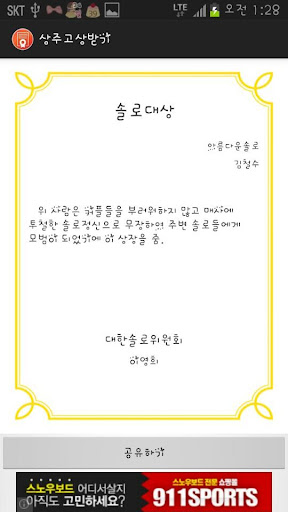 SKT LTE 오전 1:28
상주고상받기
솔로대상
아름다운솔로
김철수
위 사람은 커플들을 부러워하지 않고 매사에
투철한 솔로정신으로 무장하여 주변 솔로들에게
모범이 되었기에 이 상장을 줌.
대한솔로위원회
이영희
공유하기
스노우보드 어디서살지
아직도 고민하세요?
스노우보드 전문 쇼핑몰
911SPORTS